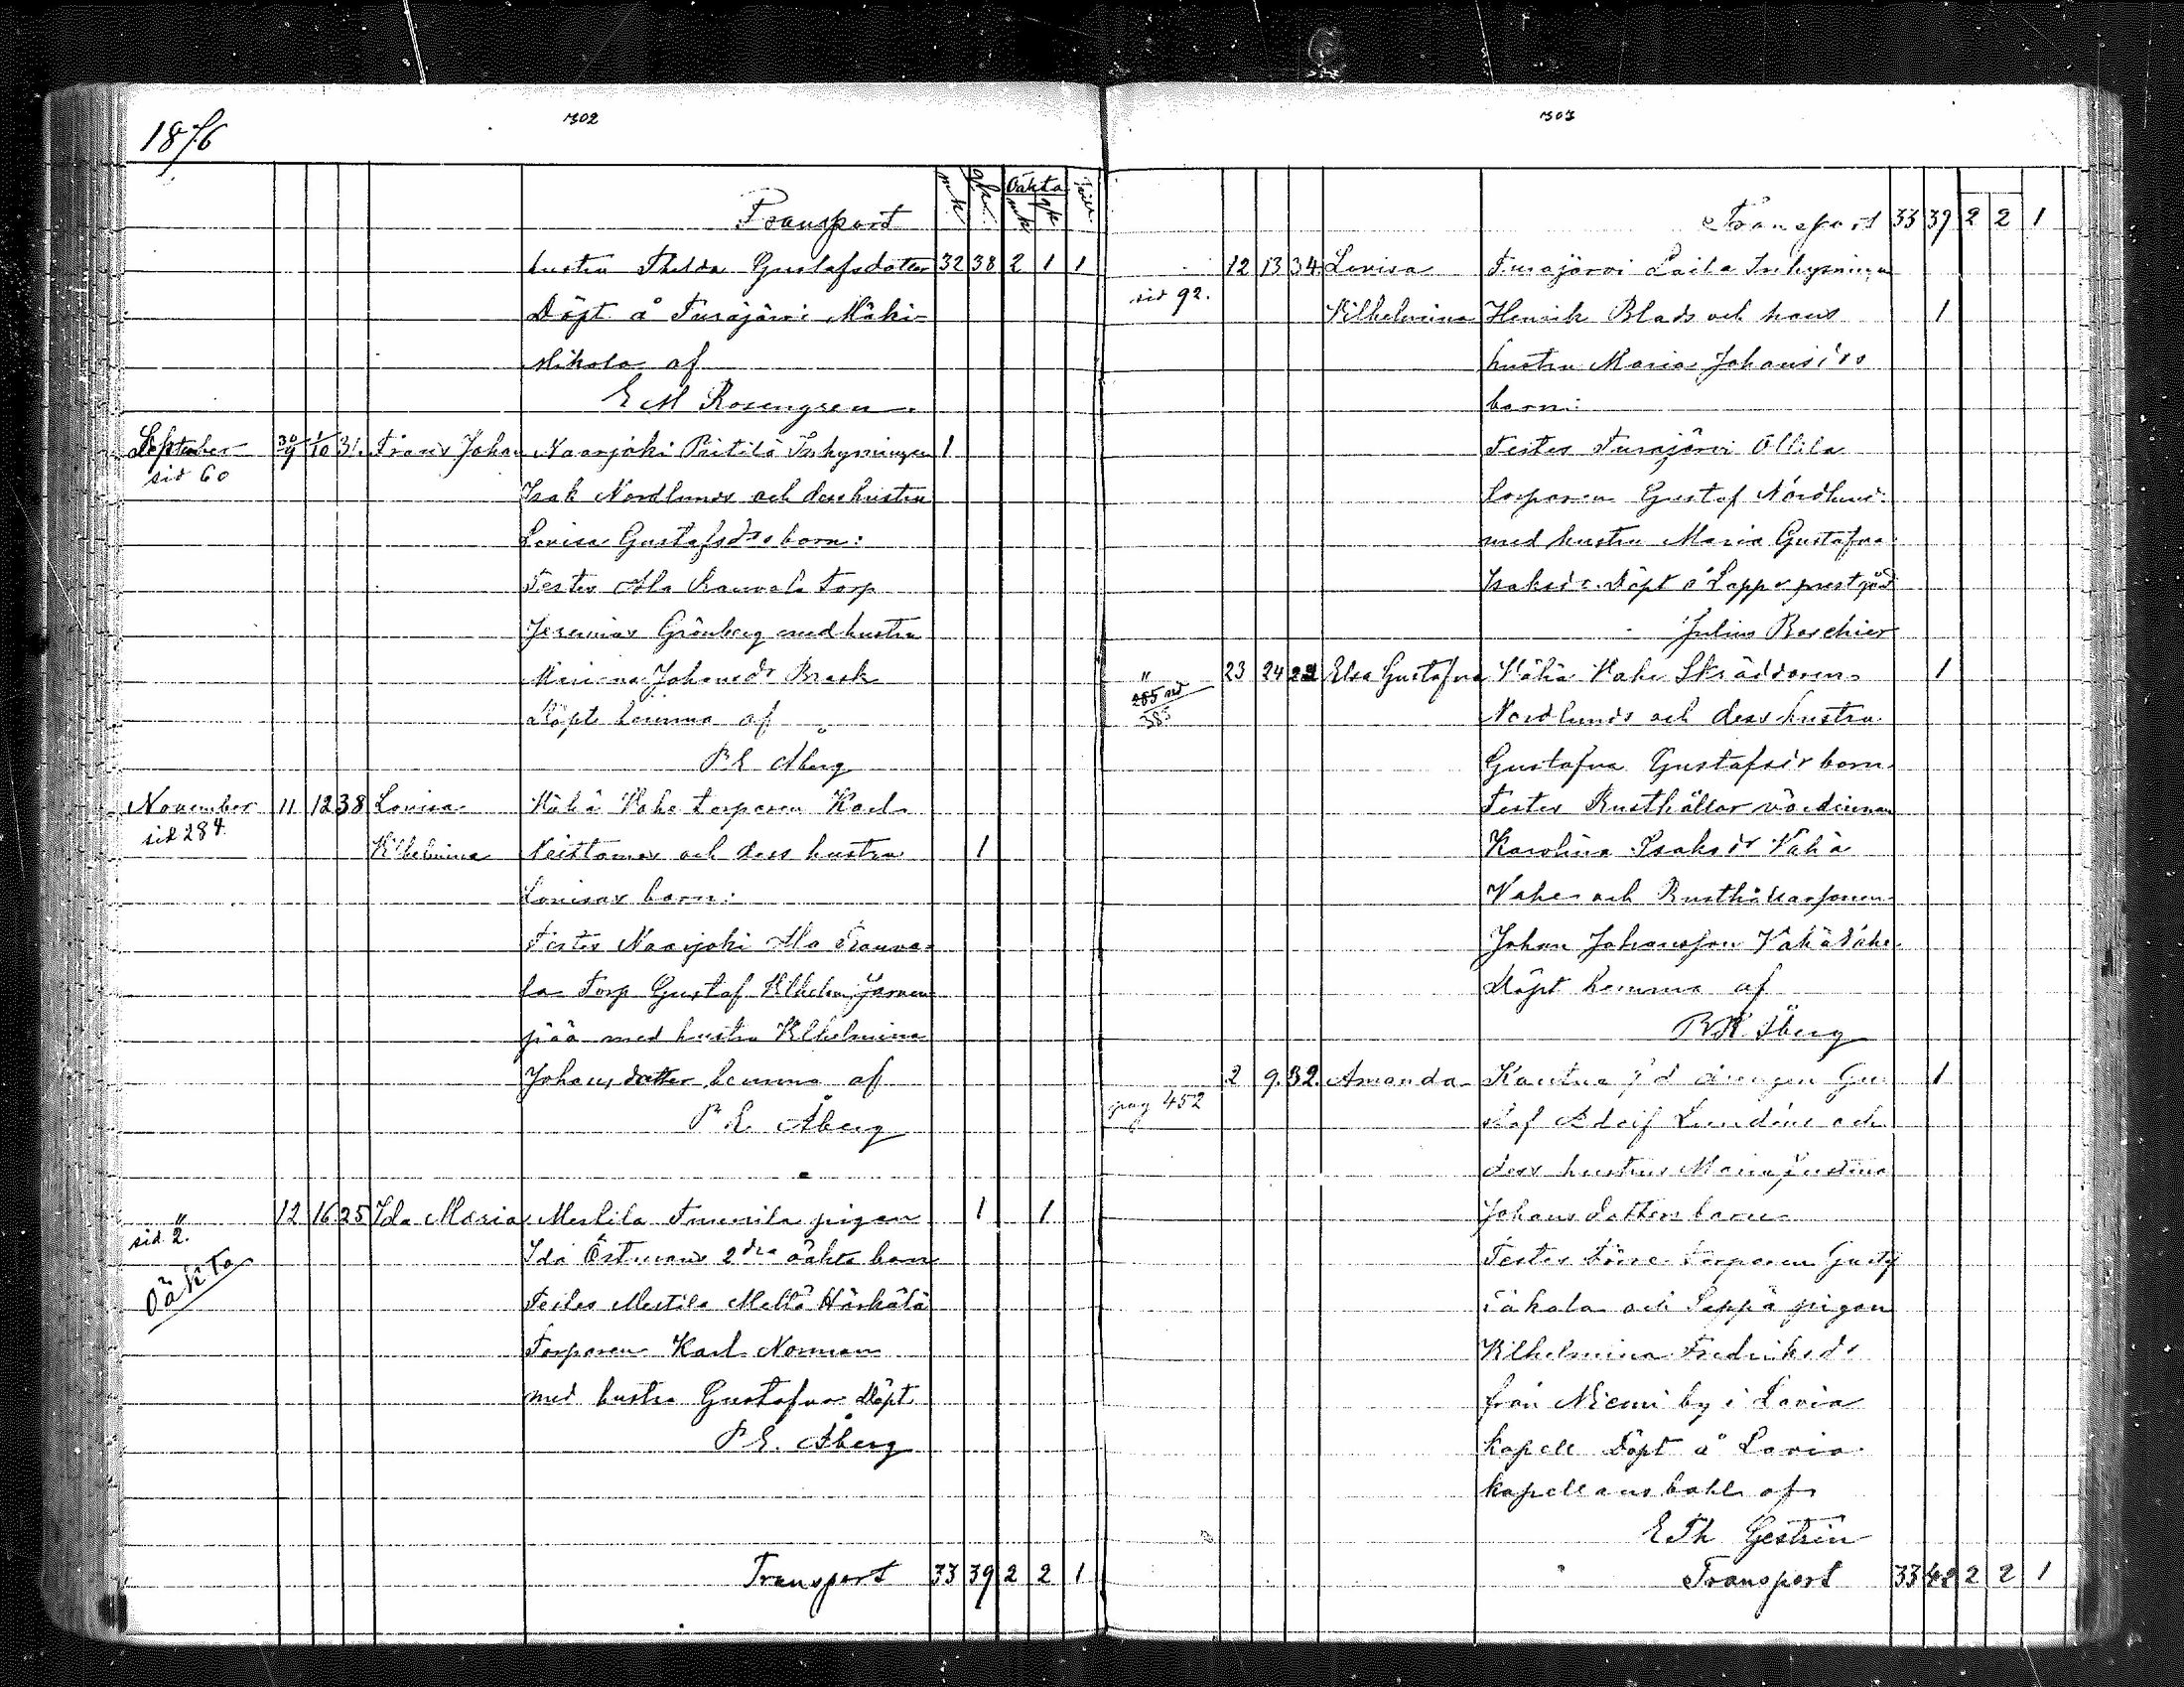 1876
302
mk qk Oäkta mk qk
Transport
hustru Thilda Gustafsdotter 32 38 2 1 1
Döpt å Turajärvi Mäki
Mikola af
E M Rosengren
September 30/9 1/10 31. Frans Johan Naarjoki Pietilä Inhysningen 1
sid 60
Isak Nordlunds och dess hustru
Lovisa Gustafsdrs barn:
Testes Ala Rauvola torp
Jeremias Grönberg med hustru
Johansdr Brask
Döpt hemma af
P E Åberg
November 11 12 38 Lovisa Vähä Vahe torparen Karl
sid 284.
Vilhelmina och dess hustru 1
Lovisas barn:
Testes Naarjoki Ala Rauvo-
la Torp Gustaf Vilhelm Järven
pää med hustru Vilhelmina
Johansdotter hemma af
P E Åberg
" 12 16 25 Ida Maria Mestilä pigan 1 1
sid 2.
Oäkta
Ida Östmans 2dra oäkta barn
Testes Mestilä Mellä Härkälä
Torparen Karl Norman
med hustru Gustafva Döpt
P E. Åberg
Transport 33 39 2 2 1
303
Transport 33 39 2 2 1
12 13 34. Lovisa Turajärvi Laila Inhysningen
sid 92.
Vilhelmina Henrik Blads och hans 1
hustru Maria Johansdrs
barn:
Testes Turajärvi Ollila
torparen Gustaf Nordlund
med hustru Maria Gustafva
Isaksdr. Döpt å Lappo prestgård
Julius Boschier
" 23 24 22 Elsa Gustafva Vähä Vahe Skräddaren 1
285
385
Nordlunds och dess hustru
Gustafva Gustafsdr barn
Testes Rusthållar värdinnan
Karolina Isaksdr Vähä
Vahe och Rusthållarsonen
Johan Johansson Vähä Vahe
Döpt hemma af
Åberg
2 9. 32. Amanda Kautua drengen Gu 1
pag 452
staf Adolf Lundéns och
dess hustrus Maria Justina
Johansdotters barn
Testes torparen Gustaf
och Seppä pigan
Vilhelmina Fredriksdr
från Niemi by i Lavia
kapell Döpt å Lavia
kapellansbohl af
E Th Gestrin
Transport 33 42 2 2 1